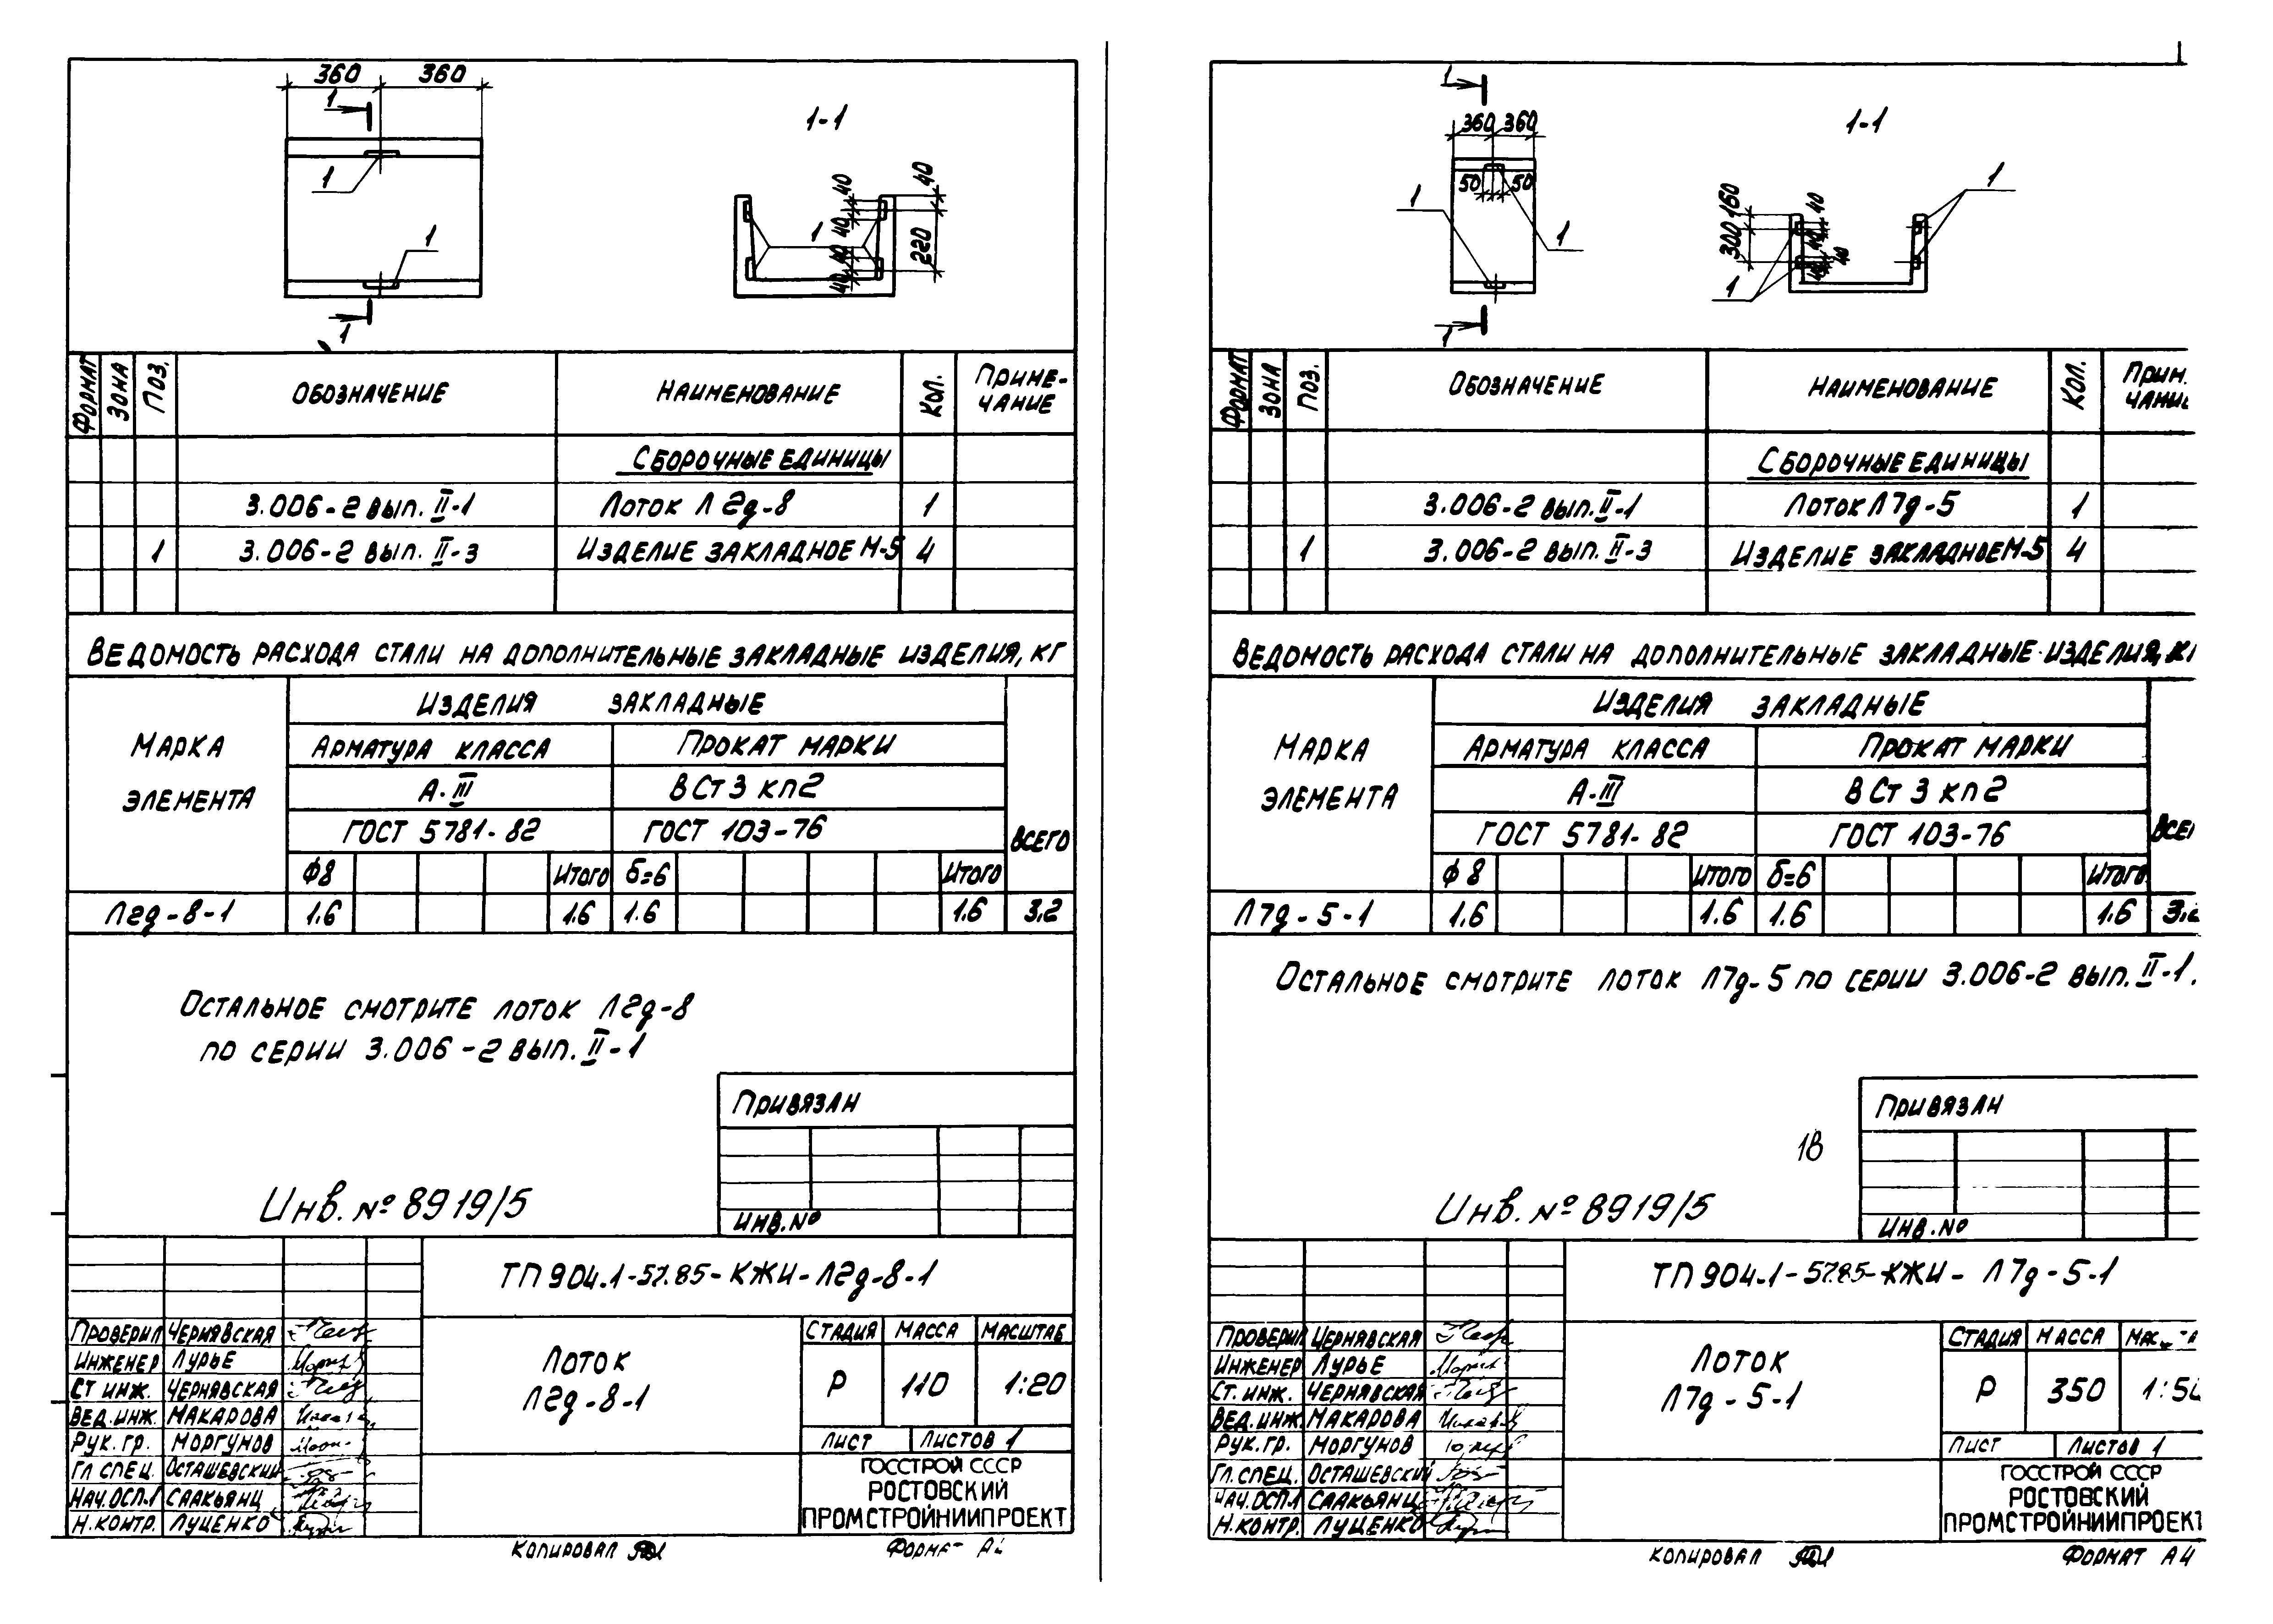 360 360
1
1-1
1
1
1
40 40
40
1
40
220
40
ФОРМАТ ЗОНА ПОЗ. ОБОЗНАЧЕНИЕ НАИМЕНОВАНИЕ КОЛ. ПРИМЕ-
ЧАНИЕ
СБОРОЧНЫЕ ЕДИНИЦЫ
3.006-2 ВЫП. II-1 ЛОТОК Л2д-8 1
1 3.006-2 ВЫП. II-3 ИЗДЕЛИЕ ЗАКЛАДНОЕ М-5 4
ВЕДОМОСТЬ РАСХОДА СТАЛИ НА ДОПОЛНИТЕЛЬНЫЕ ЗАКЛАДНЫЕ ИЗДЕЛИЯ, КГ
МАРКА
ЭЛЕМЕНТА
ИЗДЕЛИЯ ЗАКЛАДНЫЕ
АРМАТУРА КЛАССА ПРОКАТ МАРКИ
А-III ВСт3кп2
ГОСТ 5781-82 ГОСТ 103-76
ВСЕГО
ф8 ИТОГО б=6 ИТОГО
Л2д-8-1 1.6 1.6 1.6 1.6 3.2
ОСТАЛЬНОЕ СМОТРИТЕ ЛОТОК Л2д-8
ПО СЕРИИ 3.006-2 ВЫП. II-1
ПРИВЯЗАН
ИНВ.№
Инв. № 8919/5
ТП 904.1-57.85-КЖИ-Л2д-8-1
ПРОВЕРИЛ ЧЕРНЯВСКАЯ
ИНЖЕНЕР ЛУРЬЕ
СТ ИНЖ. ЧЕРНЯВСКАЯ
ВЕД.ИНЖ. МАКАРОВА
РУК.ГР. МОРГУНОВ
ГЛ СПЕЦ. ОСТАШЕВСКИЙ
НАЧ.ОСП.1 СААКЬЯНЦ
Н.КОНТР. ЛУЦЕНКО
ЛОТОК
Л2д-8-1
СТАДИЯ МАССА МАСШТАБ
Р 110 1:20
ЛИСТ ЛИСТОВ 1
ГОССТРОЙ СССР
РОСТОВСКИЙ
ПРОМСТРОЙНИИПРОЕКТ
КОПИРОВАЛ
ФОРМАТ А4
1
360 360
1-1
50 50
1
1
1
1
160
300
40
40
40
40
1
1
ФОРМАТ ЗОНА ПОЗ. ОБОЗНАЧЕНИЕ НАИМЕНОВАНИЕ КОЛ. ПРИМ
ЧАНИ
СБОРОЧНЫЕ ЕДИНИЦЫ
3.006-2 ВЫП. II-1 ЛОТОК Л7д-5 1
1 3.006-2 ВЫП. II-3 ИЗДЕЛИЕ ЗАКЛАДНОЕ М-5 4
ВЕДОМОСТЬ РАСХОДА СТАЛИ НА ДОПОЛНИТЕЛЬНЫЕ ЗАКЛАДНЫЕ ИЗДЕЛИЯ, К
МАРКА
ЭЛЕМЕНТА
ИЗДЕЛИЯ ЗАКЛАДНЫЕ
АРМАТУРА КЛАССА ПРОКАТ МАРКИ
А-III ВСт3кп2
ГОСТ 5781-82 ГОСТ 103-76
ВСЕ
ф8 ИТОГО б=6 ИТОГО
Л7д-5-1 1.6 1.6 1.6 1.6 3.2
ОСТАЛЬНОЕ СМОТРИТЕ ЛОТОК Л7д-5 ПО СЕРИИ 3.006-2 ВЫП. II-1.
ПРИВЯЗАН
18
ИНВ.№
Инв. № 8919/5
ТП 904.1-57.85-КЖИ-Л7д-5-1
ПРОВЕРИЛ ЧЕРНЯВСКАЯ
ИНЖЕНЕР ЛУРЬЕ
СТ.ИНЖ. ЧЕРНЯВСКАЯ
ВЕД.ИНЖ МАКАРОВА
РУК.ГР. МОРГУНОВ
ГЛ.СПЕЦ. ОСТАШЕВСКИЙ
НАЧ.ОСП.1 СААКЬЯНЦ
Н.КОНТР. ЛУЦЕНКО
ЛОТОК
Л7д-5-1
СТАДИЯ МАССА
Р 350 1:50
ЛИСТ ЛИСТОВ 1
ГОССТРОЙ СССР
РОСТОВСКИЙ
ПРОМСТРОЙНИИПРОЕКТ
КОПИРОВАЛ
ФОРМАТ А4